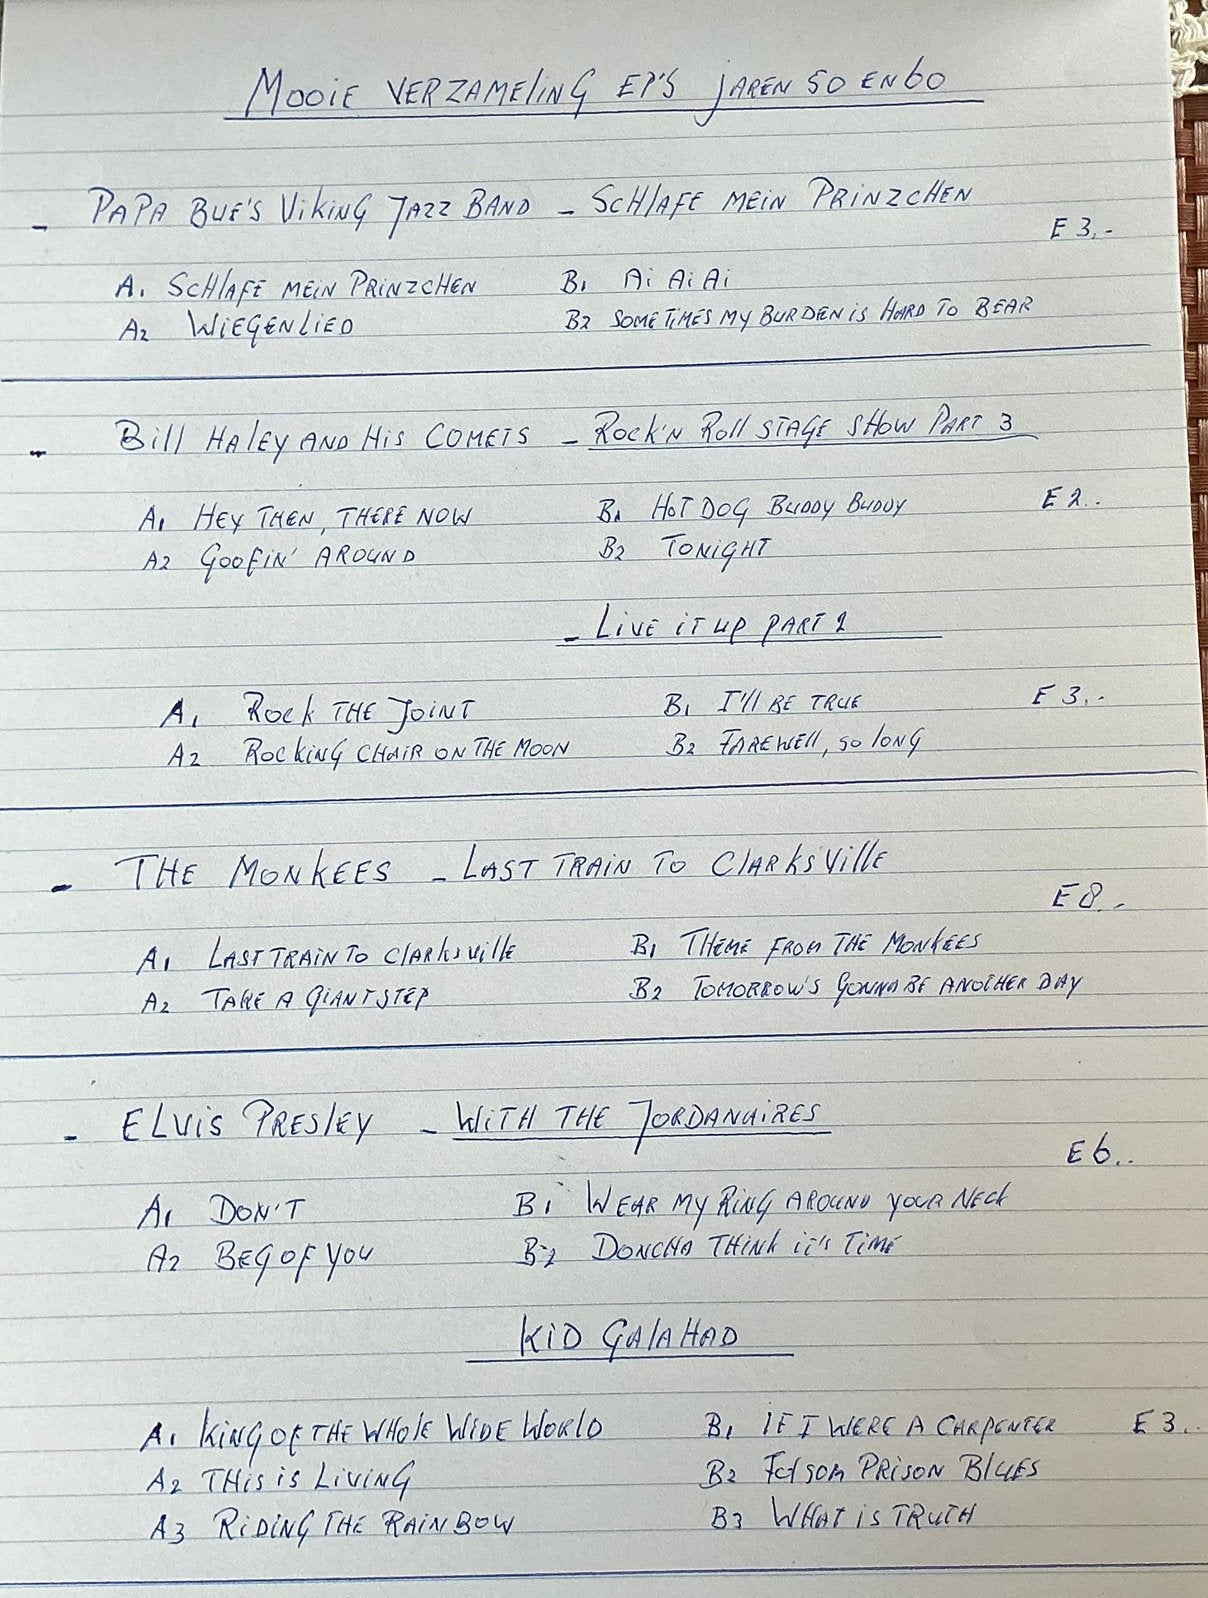 MOOIE VERZAMELING EP'S JAREN 50 EN 60
- PAPA BUE'S VIKING JAZZ BAND - SCHLAFE MEIN PRINZCHEN
E 3.-
A1 SCHLAFE MEIN PRINZCHEN B1 Ai Ai Ai
A2 WIEGENLIED B2 SOMETIMES MY BURDEN IS HARD TO BEAR
- BILL HALEY AND HIS COMETS - ROCK'N ROLL STAGE SHOW PART 3
A1 HEY THEN, THERE NOW B1 HOT DOG BUDDY BUDDY E 2..
A2 GOOFIN' AROUND B2 TONIGHT
- LIVE IT UP PART 2
A1 ROCK THE JOINT B1 I'LL BE TRUE E 3..
A2 ROCKING CHAIR ON THE MOON B2 FAREWELL, SO LONG
- THE MONKEES - LAST TRAIN TO CLARKSVILLE
E 8.-
A1 LAST TRAIN TO CLARKSVILLE B1 THEME FROM THE MONKEES
A2 TAKE A GIANT STEP B2 TOMORROW'S GONNA BE ANOTHER DAY
- ELVIS PRESLEY - WITH THE JORDANAIRES
E 6..
A1 DON'T B1 WEAR MY RING AROUND YOUR NECK
A2 BEG OF YOU B2 DONCHA THINK IT'S TIME
KID GALAHAD
A1 KING OF THE WHOLE WIDE WORLD B1 IF I WERE A CARPENTER E 3..
A2 THIS IS LIVING B2 FOLSOM PRISON BLUES
A3 RIDING THE RAINBOW B3 WHAT IS TRUTH